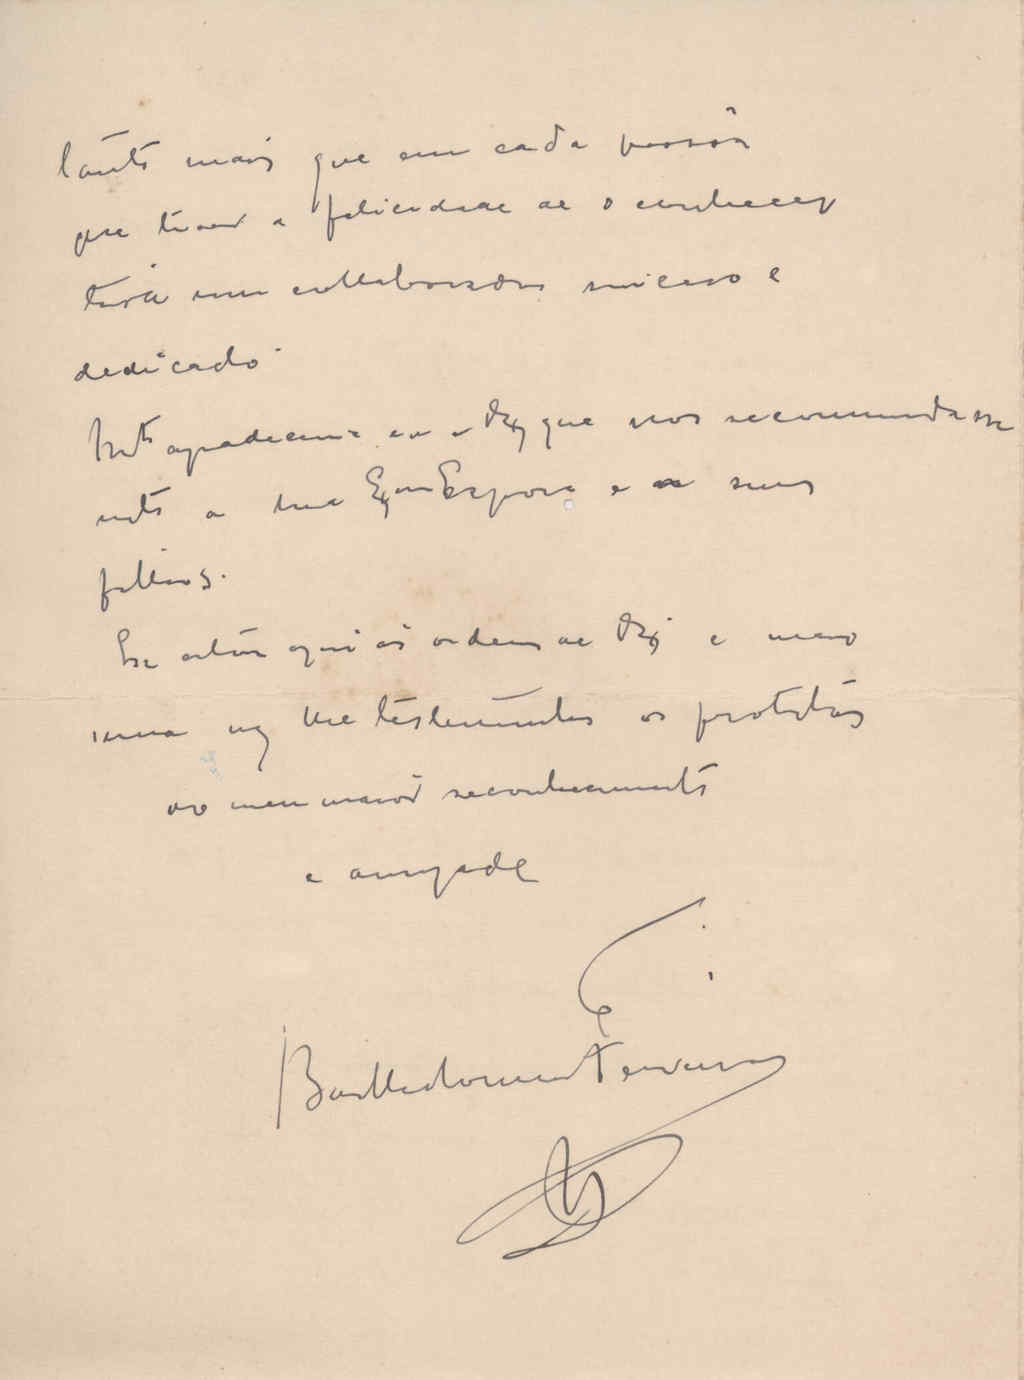 tanto mais que em cada pessôa
que tiver a felicidade de o conhecer
terá um collaborador sincero e
dedicado.
Mto agradecia eu a V. Exª que nos recommendasse
mto a sua Exma Esposa e a seus
filhos.
aqui ás ordens de V. Exª e mais
uma vez lhe testemunho os protestos
do meu maior reconhecimento
e amizade
Bartholomeu Ferreira